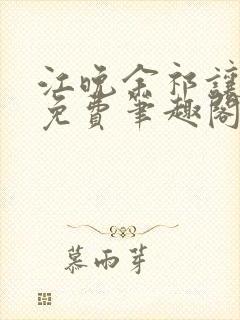 江晚余祁让
免费笔趣阁
慕雨芽